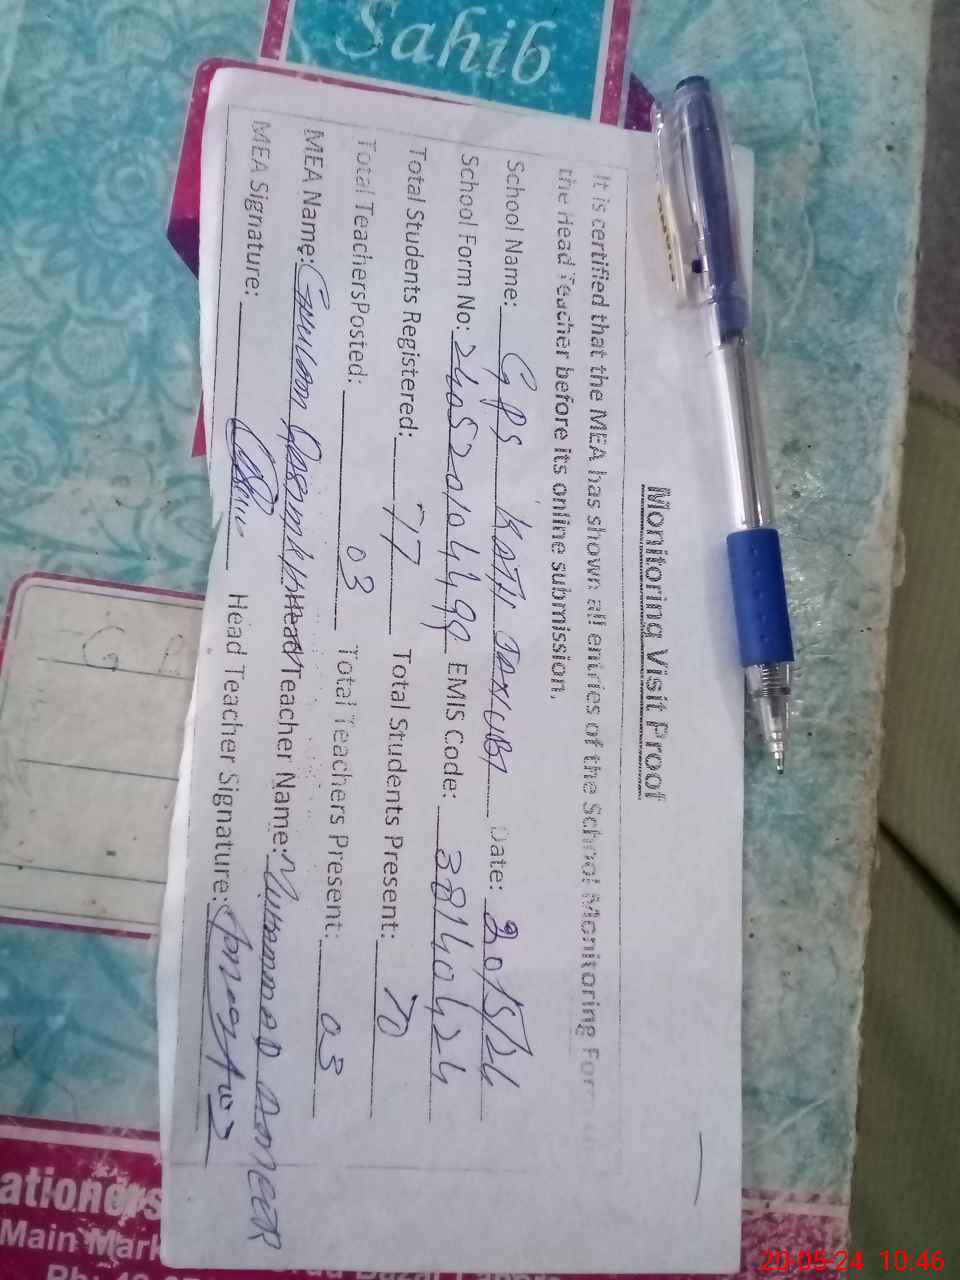 Sahib
Monitoring Visit Proof
It is certified that the MEA has shown all entries of the School Monitoring Form to
the Head Teacher before its online submission.
School Name: GPS KOTH Date: 20/5/24
School Form No: 24052010449 EMIS Code: 38140424
Total Students Registered: 77 Total Students Present: 70
Total TeachersPosted: 03 Total Teachers Present: 03
MEA Name: Ghulam Head Teacher Name: Muhammad AMEER
MEA Signature: Head Teacher Signature:
ationers
Main Mark
Ph:
20-05-24 10:46